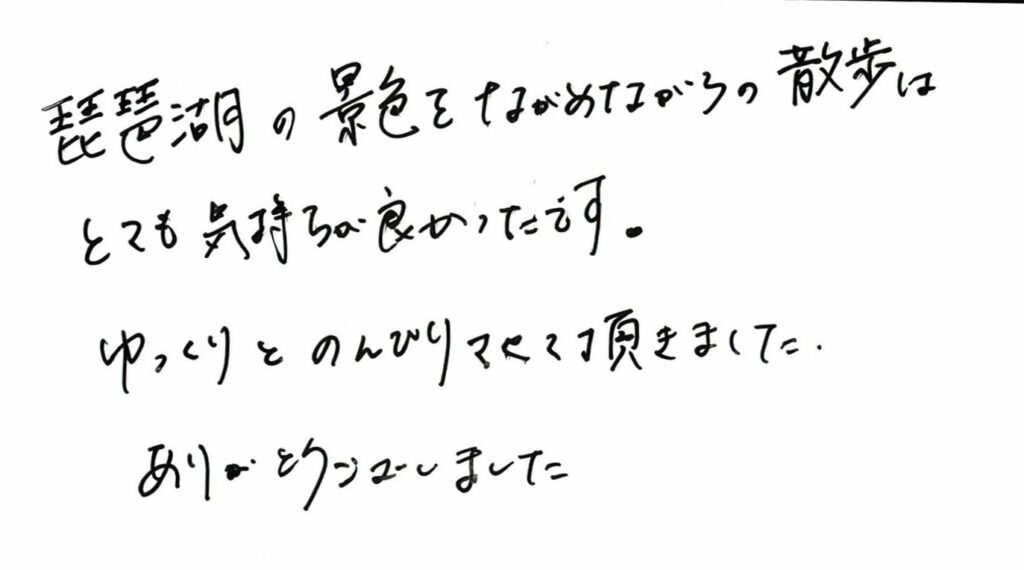 琵琶湖の景色をながめながらの散歩は
とても気持ちが良かったです。
ゆっくりとのんびりさせて頂きました.
ありがとうございました